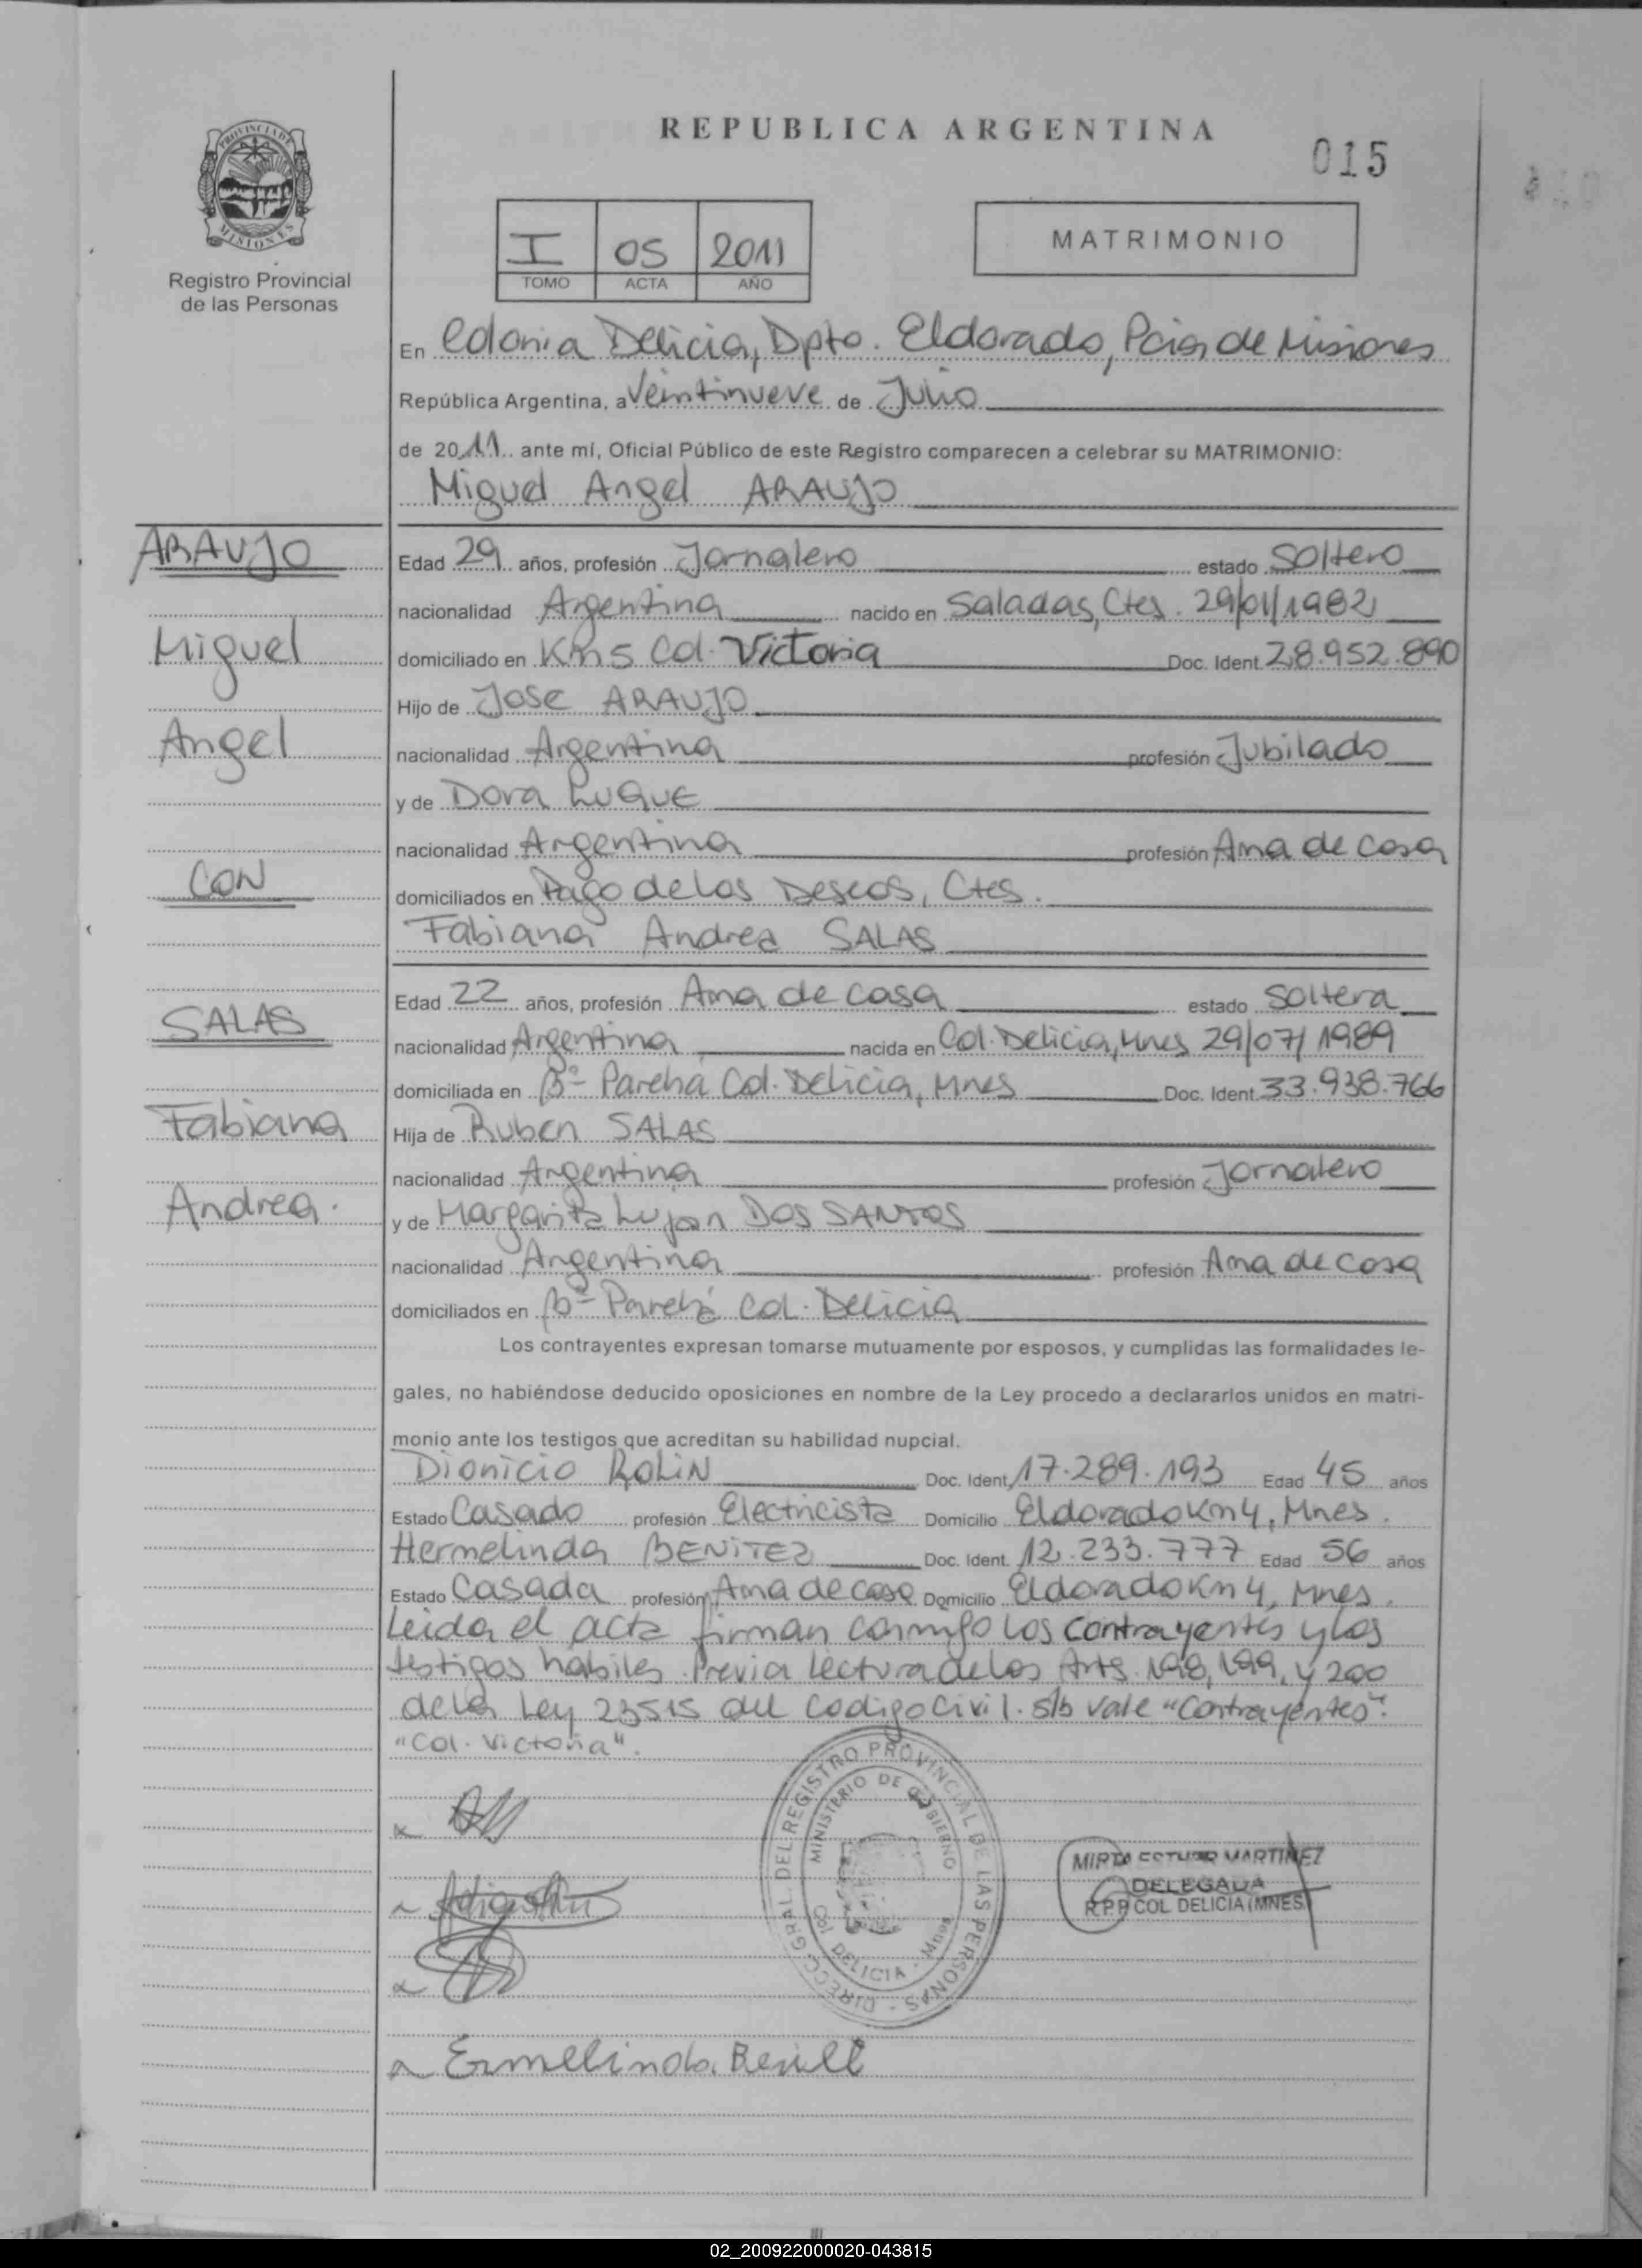 REPUBLICA ARGENTINA
015
PROVINCIA DE MISIONES
Registro Provincial
de las Personas
I 05 2011
TOMO ACTA AÑO
MATRIMONIO
En Colonia Delicia, Dpto. Eldorado, Pcia de Misiones
República Argentina, a Veintinueve de Julio
de 2011 ante mí, Oficial Público de este Registro comparecen a celebrar su MATRIMONIO:
Miguel Angel ARAUJO
ARAUJO
Miguel
Angel
CON
SALAS
Fabiana
Andrea.
Edad 29 años, profesión Jornalero estado Soltero
nacionalidad Argentina nacido en Saladas, Ctes. 29/01/1982
domiciliado en Km 5 Col. Victoria Doc. Ident. 28.952.890
Hijo de Jose ARAUJO
nacionalidad Argentina profesión Jubilado
y de Dora LUQUE
nacionalidad Argentina profesión Ama de casa
domiciliados en Pago de los Deseos, Ctes.
Fabiana Andrea SALAS
Edad 22 años, profesión Ama de casa estado Soltera
nacionalidad Argentina nacida en Col. Delicia, Mnes 29/07/1989
domiciliada en Bº Parehá Col. Delicia, Mnes Doc. Ident. 33.938.766
Hija de Ruben SALAS
nacionalidad Argentina profesión Jornalero
y de Margarita Lujan DOS SANTOS
nacionalidad Argentina profesión Ama de casa
domiciliados en Bº Parehá Col. Delicia
Los contrayentes expresan tomarse mutuamente por esposos, y cumplidas las formalidades le-
gales, no habiéndose deducido oposiciones en nombre de la Ley procedo a declararlos unidos en matri-
monio ante los testigos que acreditan su habilidad nupcial.
Dionicio ROLIN Doc. Ident. 17.289.193 Edad 45 años
Estado Casado profesión Electricista Domicilio Eldorado Km 4, Mnes.
Hermelinda BENITEZ Doc. Ident. 12.233.777 Edad 56 años
Estado Casada profesión Ama de casa Domicilio Eldorado Km 4, Mnes.
Leida el acta firman conmigo los contrayentes y los
testigos habiles. Previa lectura de los Arts. 198, 199, y 200
de la Ley 23515 del Codigo Civil. s/b vale "Contrayentes".
"Col. Victoria".
DIRECC. GRAL. DEL REGISTRO PROVINCIAL DE LAS PERSONAS
MINISTERIO DE GOBIERNO
Col. DELICIA - Mnes
MIRTA ESTHER MARTINEZ
DELEGADA
R.P.P COL. DELICIA (MNES)
Ermelinda
02_200922000020-043815